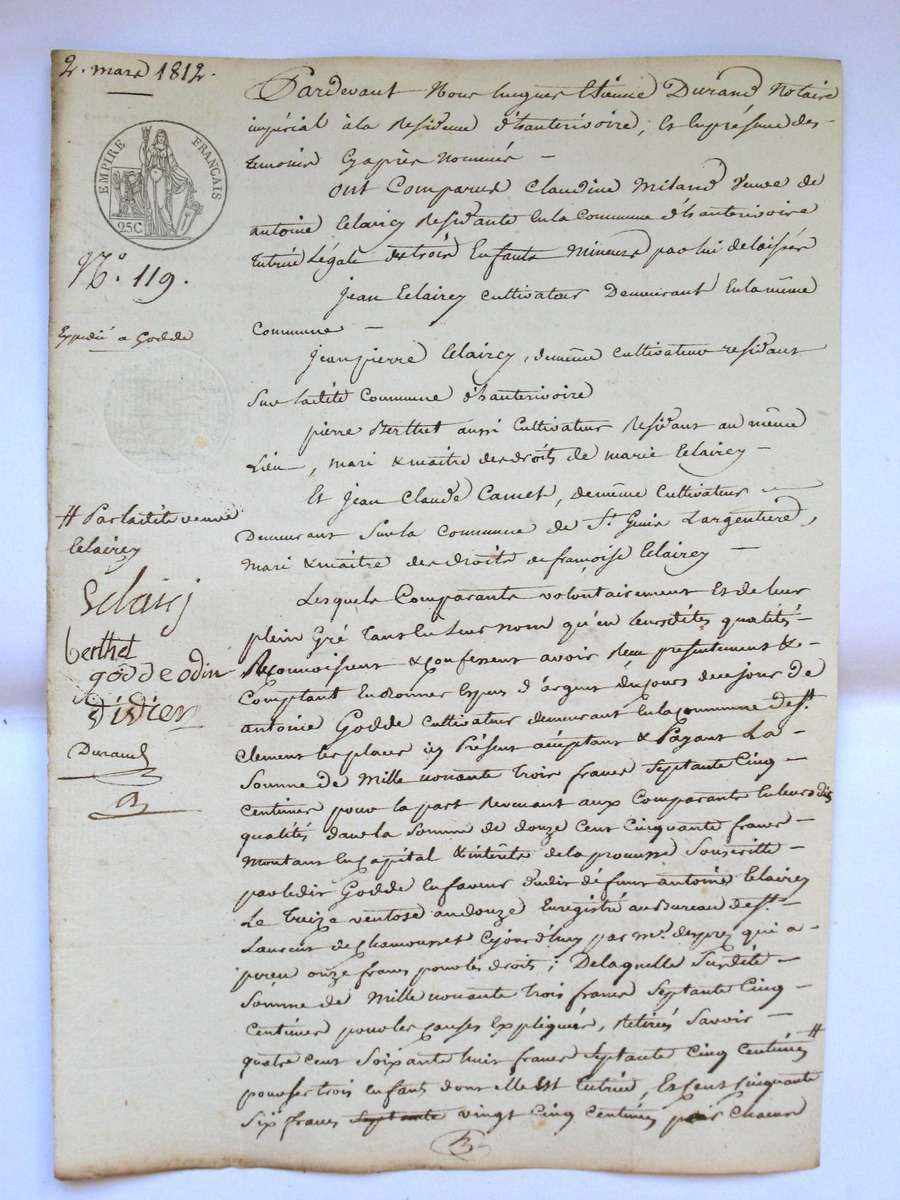 2. mars 1812.
EMPIRE FRANÇAIS
25C.
N.o 119.
Expedié a Godde
# Par ladite veuve
lelairey
berthet
godde odin
didier
Durand
Pardevant Nous hugues Etienne Durand Notaire
impérial à la Residence d'hauterivoire, Et En présence des
temoins Cyaprès nommés —
Ont Comparus Claudine Miland Veuve de
antoine lelairey Residante En la Commune d'hauterivoire
tutrice Légale de trois Enfants Mineurs par lui delaissés
Jean lelairey cultivateur Demeurant En la même
Commune —
Jean pierre lelairey, de même cultivateur residant
Sur ladite Commune d'hauterivoire
pierre Berthet aussi Cultivateur Residant au même
Lieu, mari & maitre des droits de marie lelairey —
Et Jean Claude Camet, de même Cultivateur —
Demeurant Sur la Commune de St. Genis Largentiere,
Mari & maitre des droits de francoise lelairey —
Lesquels Comparants volontairement Et de leur
plein Gré tant En Leur nom qu'en leursdites qualités —
Reconnoissent & Confessent avoir Recu présentement &
Comptant En Bonnes Espèces d'argent du jours de ce jour de
antoine Godde Cultivateur demeurant En la Commune de St.
Clement les places icy Présent acceptant & Payant La —
Somme de Mille nonante trois francs Septante Cinq —
Centimes pour la part Revenant aux Comparants En leursdites
qualités dans la Somme de douze Cent Cinquante francs —
Montant En Capital & intérêts de la promesse Souscritte —
par ledit Godde En faveur dudit défunt antoine lelairey
Le treize ventose an douze Enregistré au Bureau de St. —
Laurent de Chamousset Cejourd'huy par Mr. despres qui a —
perçu onze francs pour les droits; De laquelle Susdite —
Somme de Mille nonante trois francs Septante Cinq —
Centimes pour les Causes Expliquées, Retirés Savoir —
quatre cent Soixante huit francs Septante Cinq Centimes #
pour ses trois enfants dont elle Est tutrice, Et Cent Cinquante
Six francs septante vingt Cinq Centimes par Chacun